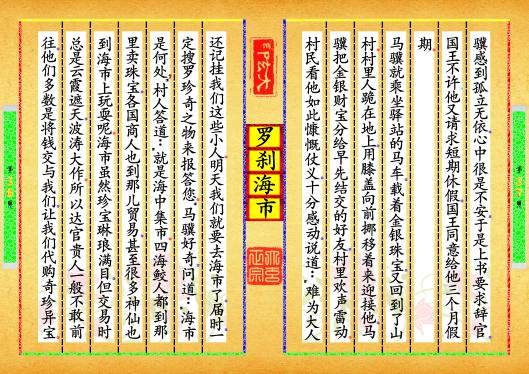 骥感到孤立无依心中很是不安于是上书要求辞官
国王不许他又请求短期休假国王同意给他三个月假
期。
马骥就乘坐驿站的马车载着金银珠宝又回到了山
村村里人跪在地上用膝盖向前挪移着来迎接他马
骥把金银财宝分给早先结交的好友村里欢声雷动
村民看他如此慷慨仗义十分感动说道：难为大人
罗刹海市
还记挂我们这些小人明天我们就要去海市了届时一
定搜罗珍奇之物来报答您。马骥好奇问道：海市
是何处？村人答道：就是海中集市四海鲛人都到那
里卖珠宝各国商人也到那儿贸易甚至很多神仙也
到海市上玩耍呢海市虽然珍宝琳琅满目但交易时
总是云霞遮天波涛大作所以达官贵人一般不敢前
往他们多数是将钱交与我们让我们代购奇珍异宝